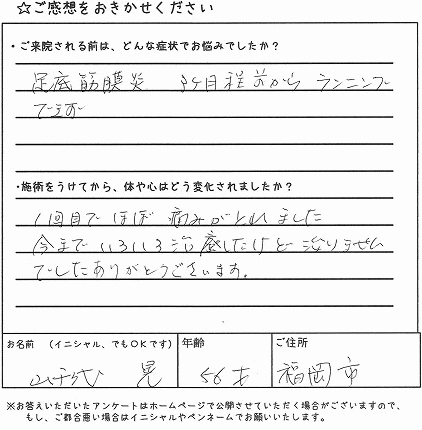 ☆ご感想をおきかせください
・ご来院される前は、どんな症状でお悩みでしたか？
足底筋膜炎 3ヶ月程前から ランニング
です
・施術をうけてから、体や心はどう変化されましたか？
1回目でほぼ痛みがとれました
今までいろいろ治療したけど治りません
でしたありがとうございます。
お名前 （イニシャル、でもＯＫです） 年齢 ご住所
晃 56才 福岡市
※お答えいただいたアンケートはホームページで公開させていただく場合がございますので、
もし、ご都合悪い場合はイニシャルやペンネームでお願いいたします。